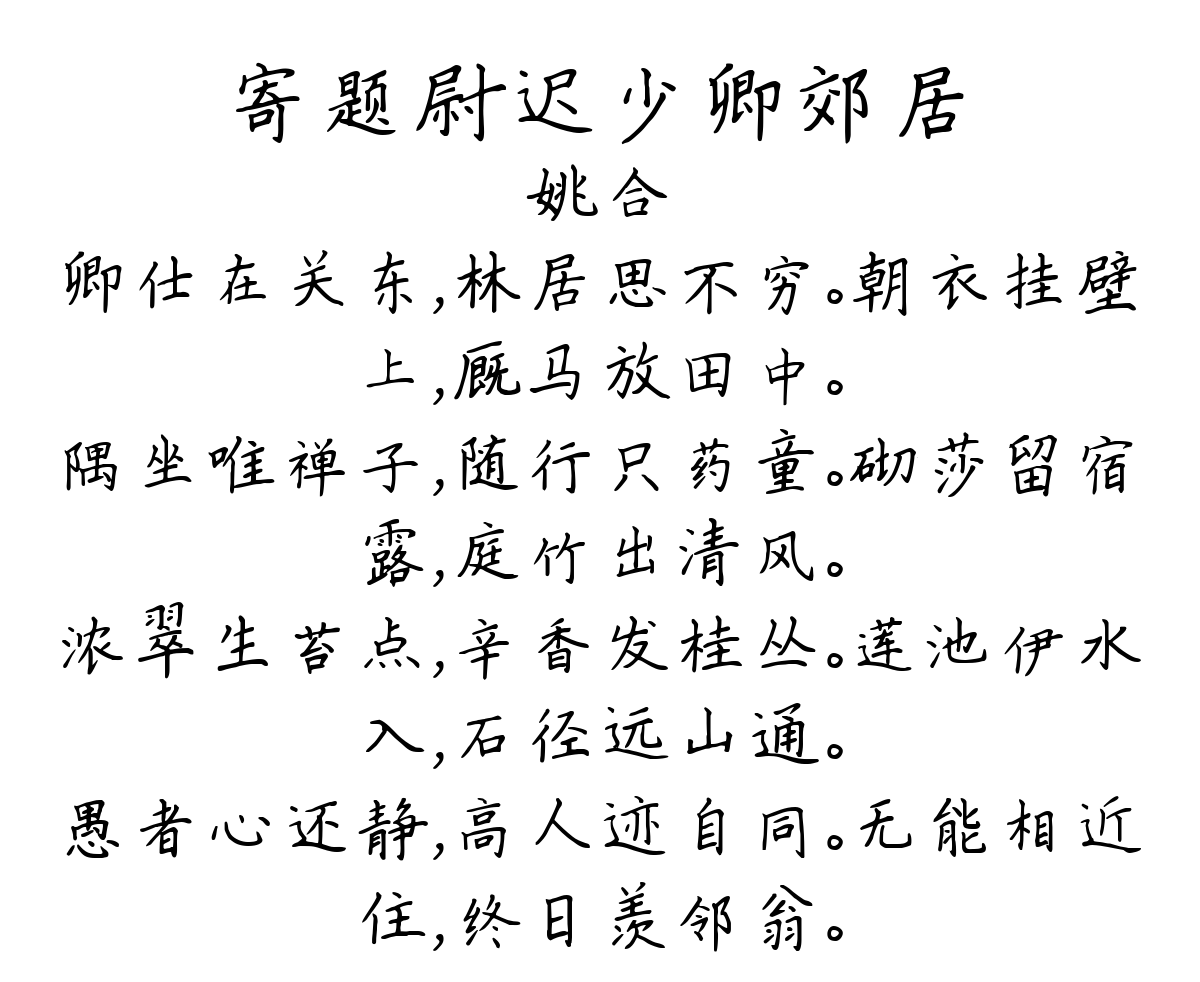 寄题尉迟少卿郊居
姚合
卿仕在关东,林居思不穷。朝衣挂壁
上,厩马放田中。
隅坐唯禅子,随行只药童。砌莎留宿
露,庭竹出清风。
浓翠生苔点,辛香发桂丛。莲池伊水
入,石径远山通。
愚者心还静,高人迹自同。无能相近
住,终日羡邻翁。